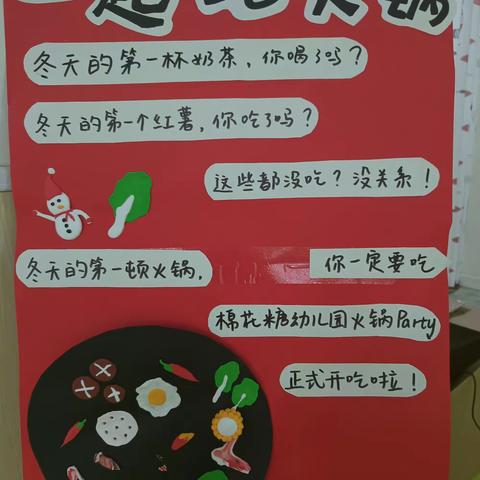 一起吃火锅
冬天的第一杯奶茶，你喝了吗？
冬天的第一个红薯，你吃了吗？
这些都没吃？没关系！
冬天的第一顿火锅，
你一定要吃
棉花糖幼儿园火锅Party
正式开吃啦！